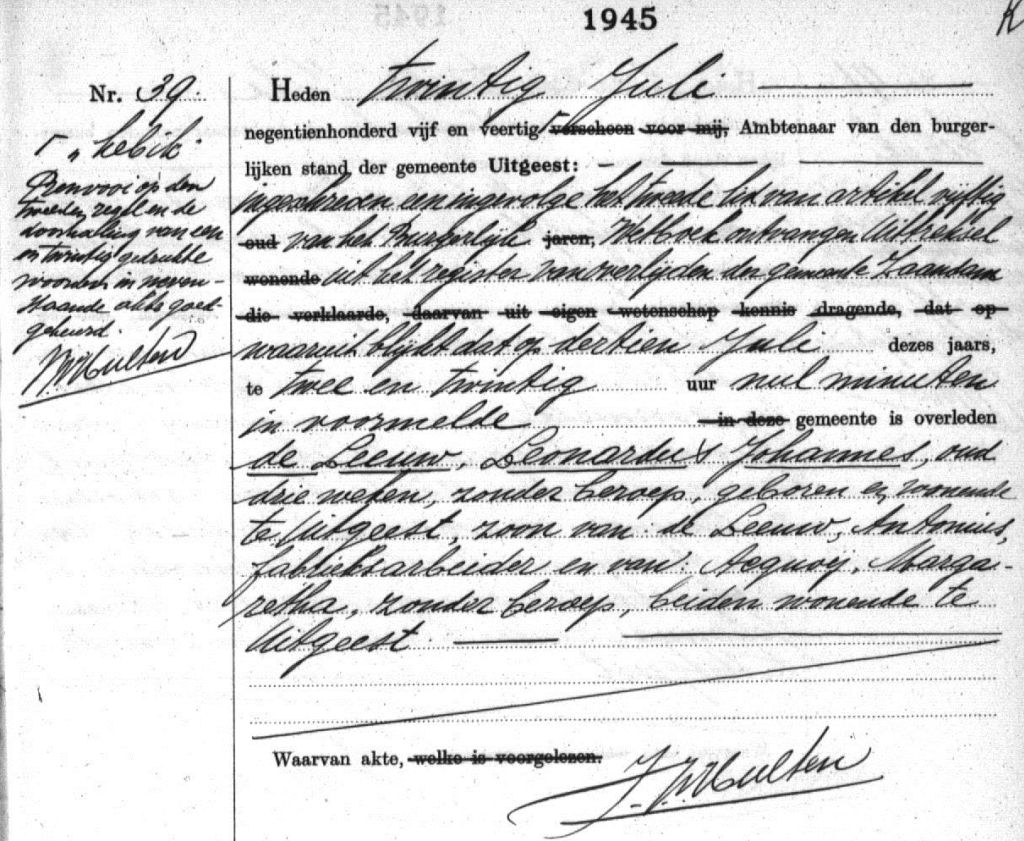 1945
K
Nr. 39.
Heden twintig Juli
negentienhonderd vijf en veertig ⌈ verscheen voor mij, Ambtenaar van den burger-
lijken stand der gemeente Uitgeest: -
⌈ "heb ik"
Renvooi op den
tweeden regel en de
doorhaling van een
en twintig gedrukte
woorden in neven-
staande akte goed-
gekeurd.
Hulten
ingeschreven een ingevolge het tweede lid van artikel vijftig
oud van het Burgerlijk jaren, Wetboek ontvangen Uittreksel
wonende uit het register van overlijden der gemeente Zaandam
die verklaarde, daarvan uit eigen wetenschap kennis dragende, dat op
waaruit blijkt dat op dertien Juli dezes jaars,
te twee en twintig uur nul minuten
in voormelde in deze gemeente is overleden
de Leeuw, Leonardus Johannes, oud
drie weken, zonder beroep, geboren en wonende
te Uitgeest, zoon van: de Leeuw, Antonius,
fabrieksarbeider en van: Acquoij, Marga-
retha, zonder beroep, beiden wonende te
Uitgeest.
Waarvan akte, welke is voorgelezen.
Hulten